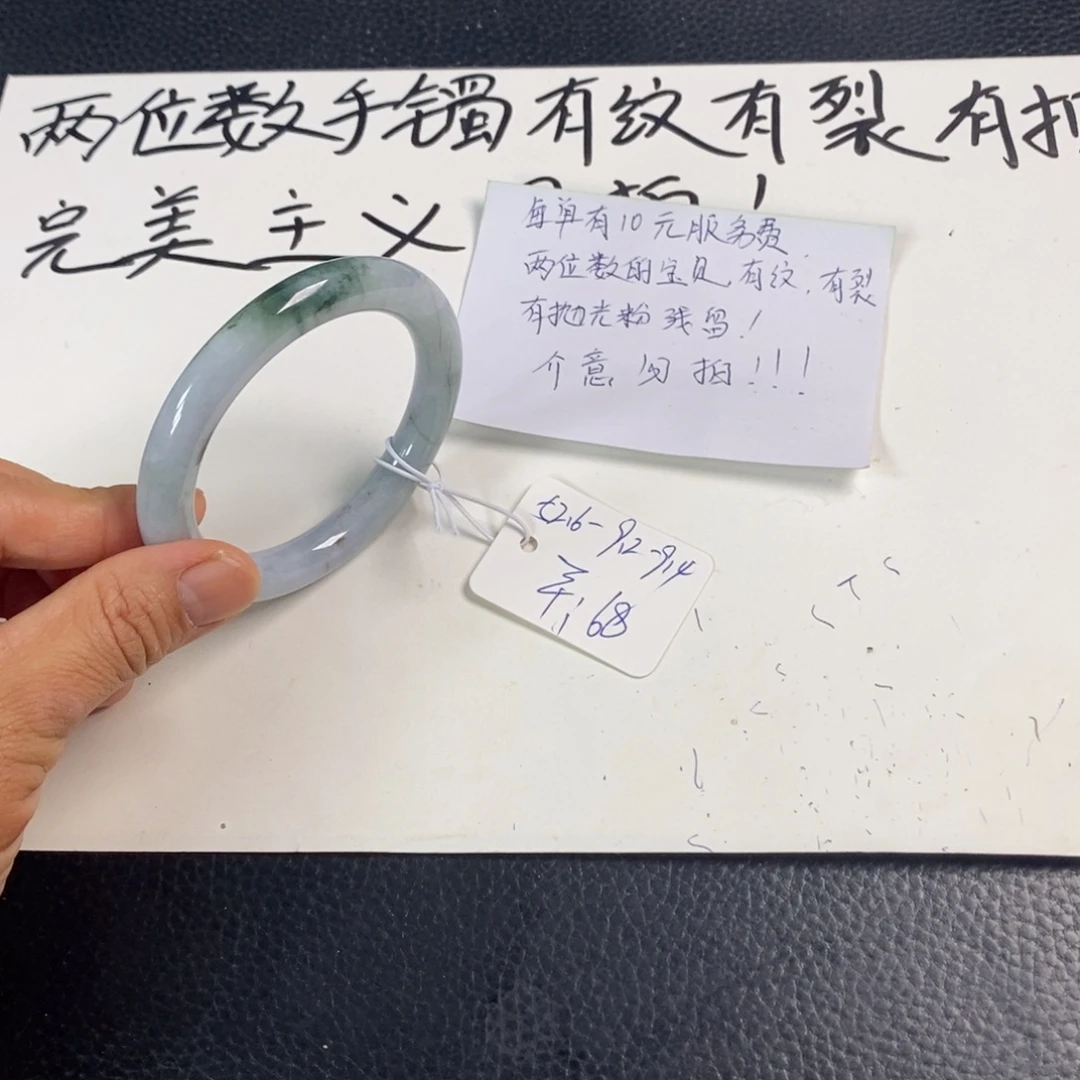 两位数手镯有纹有裂有抛
完美主义
每单有10元服务费
两位数的宝贝,有纹,有裂
有抛光粉残留!
介意勿拍!!!
52.6-9.2-9.4
68